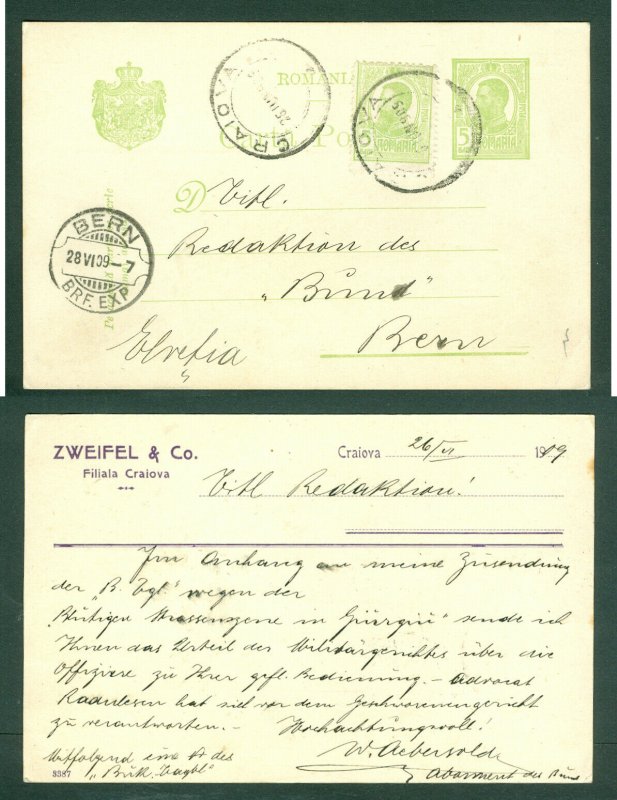 ROMANIA
CRAIOVA
ROMANIA
5
Titl.
Redaktion des
„Bund"
Bern
Elveția
BERN
28 VI 09-7
BRF. EXP.
ZWEIFEL & Co.
Filiala Craiova
Craiova 26/VI 1909
Titl Redaktion!
Im Anhang an meine Zusendung
der „B. Tgl." wegen der
Blutigen Strassenszene in Giurgiu" sende ich
Ihnen das Urteil des Militärgerichtes über die
Offiziere zu Ihrer gefl. Bedienung. - Advocat
hat sich vor dem Geschworenengericht
zu verantworten. - Hochachtungsvoll!
W. Aebersold
Mitfolgend eine des
„Buk. Tagbl" Abonnent des Bund
3387